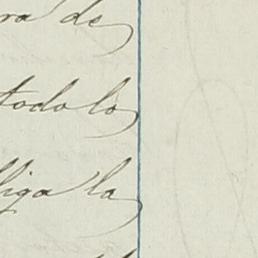 ra de
todo lo
liga la